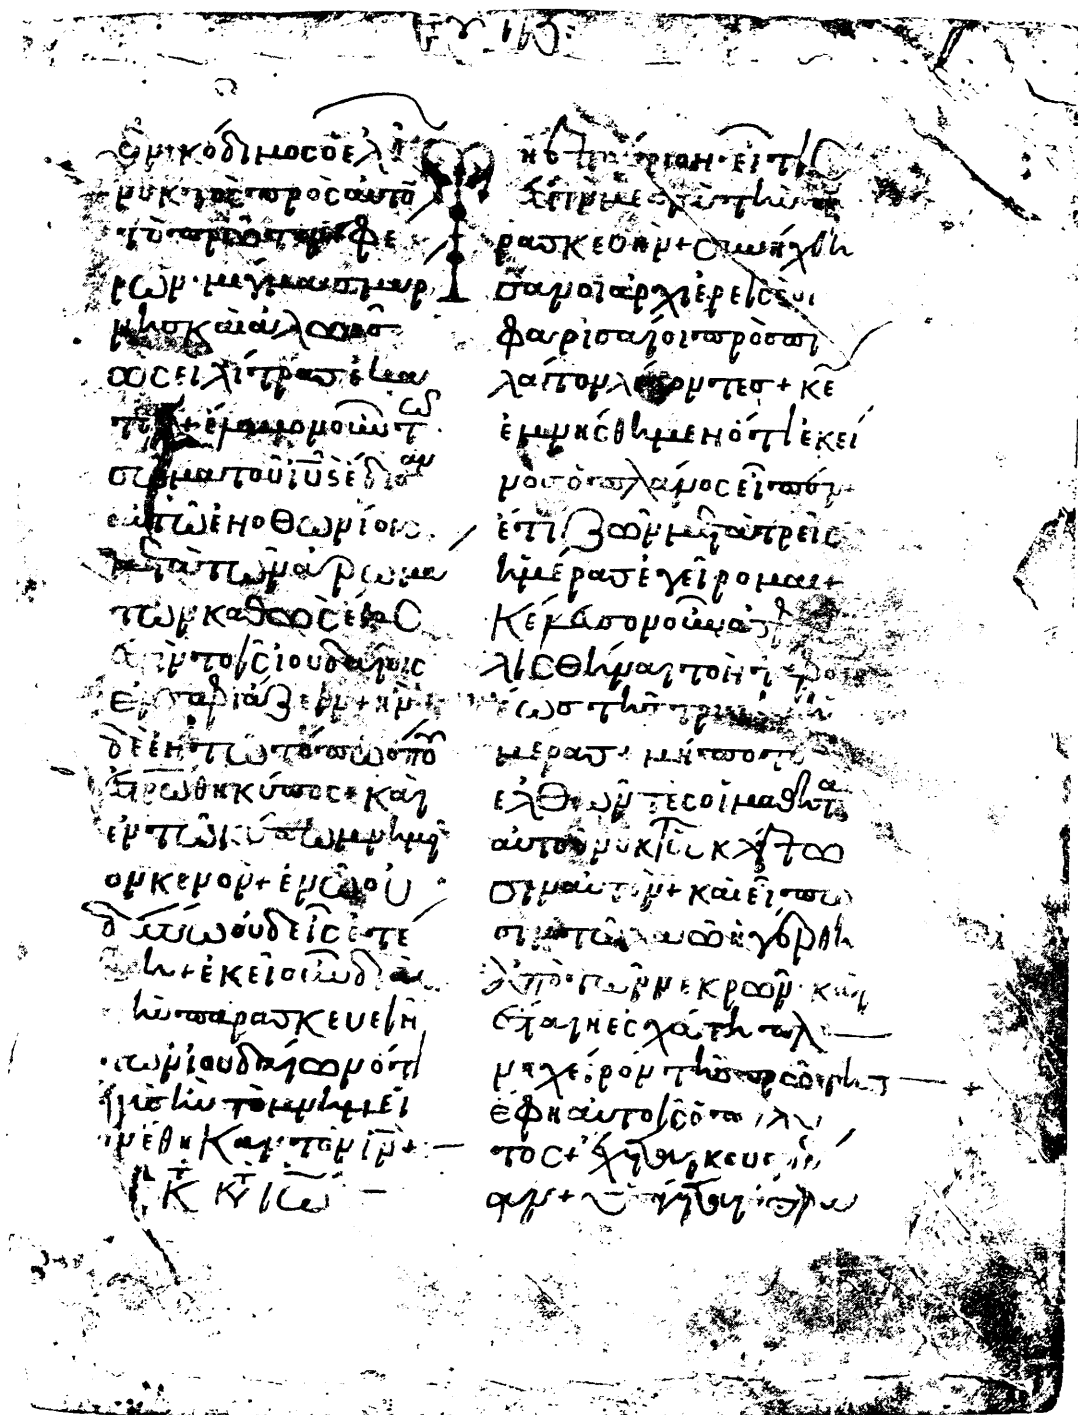 ὁ νικόδιμος ὁ ἐλθὼ
νυκτὸς πρὸς αὐτὸ
τὸ πρῶτον φέ
ρων· μίγμα σμυρ
νης καὶ ἀλωης
ὡς εἰ λίτρας ἑκα
τὸν + ἔλαβον οὖν τ
σῶμα τοῦ ι̅υ̅ ϛ ἔδισαν
αὐτῶ ἐν ὀθωνίοις
μετὰ τῶν ἀρωμα
των καθὼς ἔθος
ἐστὶν τοῖς ἰουδαίοις
ἐνταφιάζειν + ἦν
δὲ ἐν τῶ τόπω ὅπου
ἐστρώθη κύπος + καὶ
ἐν τῶ κύπω μνημεῖ
ον κενον + ἐν ὧ οὐ
δέπω οὐδεὶς ἐτέ
θη + ἐκεῖ οὖν διὰ
τὴν παρασκευεὶν
τῶν ἰουδαίων ὅτι
ἐγγὺς ἦν τὸ μνημεῖ
ον ἔθηκαν τὸν ι̅ν̅ +
ἐπαύριον· εἵτις
ἐστὶν μετὰ τὴν πα
ρασκευὴν + συνήχθη
σαν οἱ ἀρχιἐρεῖς οι
φαρισαῖοι πρὸς πι
λάτον λέγοντες + κ̅ε̅
ἐμνήσθημεν ὅτι ἐκεῖ
νος ὁ πλάνος εἶπεν
ἔτι ζῶν μετὰ τρεῖς
ἡμέρας ἐγεῖρομαι +
Κέλευσον οὖν ἀσφα
λισθῆναι τὸν τάφον
ἕως τῆς τρίτης ἡ
μέρας· μήποτε
ελθῶντες οἱ μαθητα
αὐτοῦ νυκτὸς κλέψω
σιν αὐτὸν + καὶ εἴπω
σιν τῶ λαῶ ἠγέρθη
ἀπὸ τῶν νεκρῶν· καὶ
ἔσται ἡ ἐσχάτη πλα
νη χείρον τῆς πρώτης +
ἔφη αὐτοῖς ὁ πιλα
τος + ἔχετε κουστω